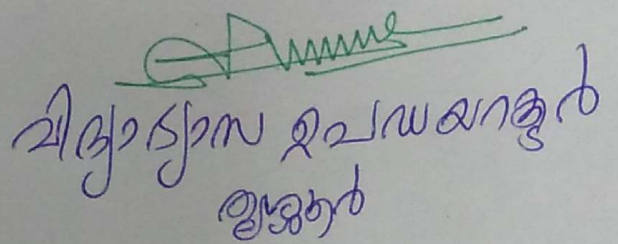 വിദ്യാഭ്യാസ ഉപഡയറക്ടർ
തൃശ്ശൂർ